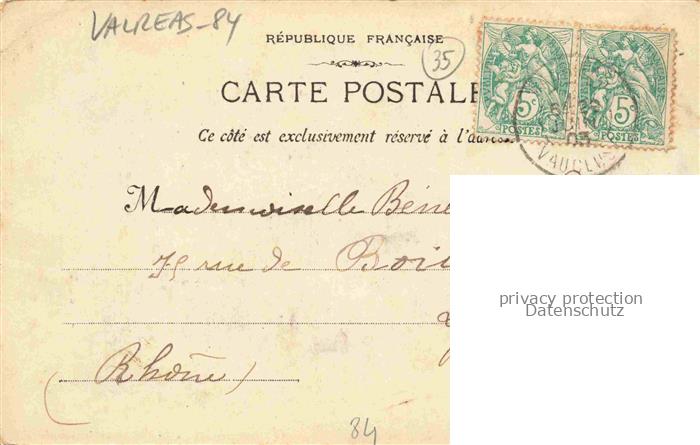 VALREAS-84
RÉPUBLIQUE FRANÇAISE
35
CARTE POSTALE
Ce côté est exclusivement réservé à l'adresse
5c 5c
POSTES POSTES
VAUCLUSE
Mademoiselle Béne
75 rue de Boi
(Rhône)
privacy protection
Datenschutz
84